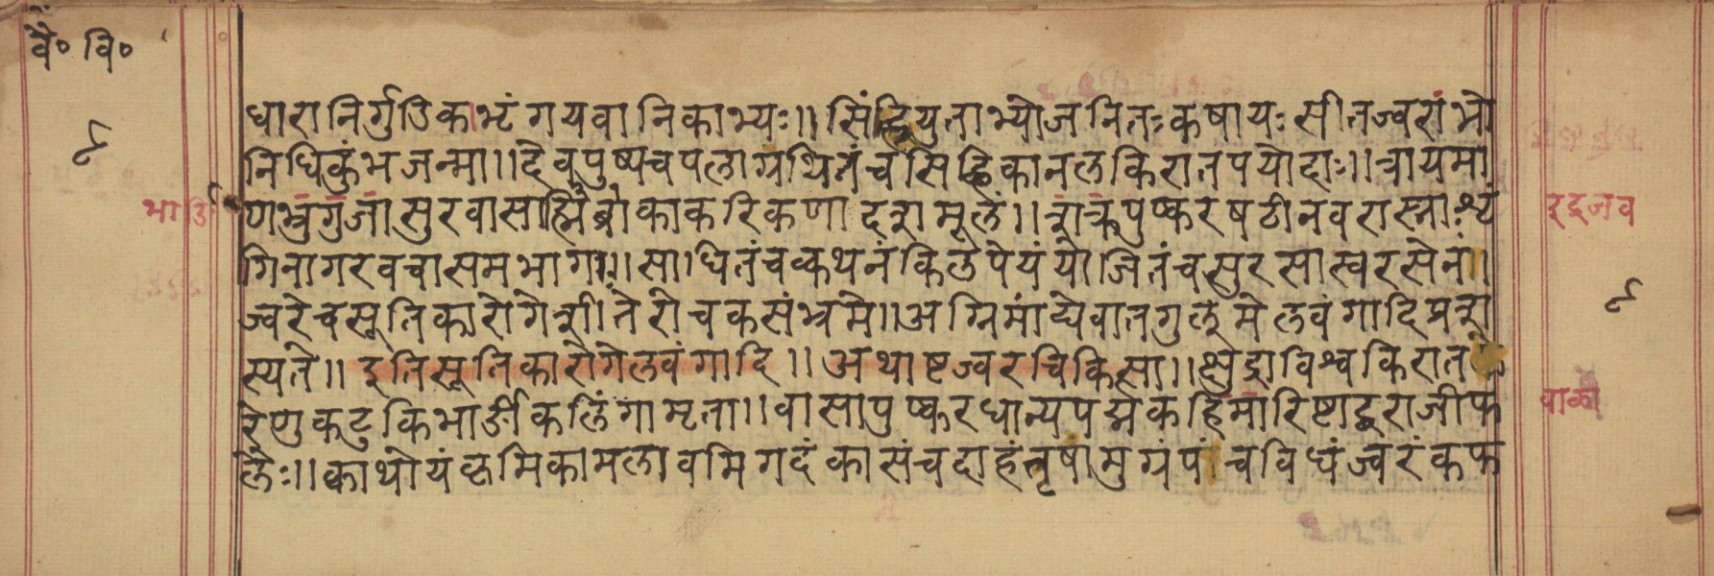 वै॰ वि॰
९
धारानिर्गुडिकाभृंगयवानिकाभ्यः॥ सिंहियुताभ्योजनितःकषायः सीतज्वरांभो
निधिकुंभजन्मा॥ देवपुष्पचपलाग्रथितंचसिद्धिकानलकिरातपयोदाः॥ त्रायमा
णभ्रुगुजासुरवासा ब्राकाकरिकणादशमूलं॥ शक्रपुष्करषठीनवरास्ना
गिनागरवचासमभागाः॥ साधितंचक्वथनंकिलपेयंयोजितंचसुरसास्वरसेनं॥
ज्वरेचसूतिकारोगेशीतेरोचकसंभ्रमे॥ अग्निमांद्येवातगुल्मेलवंगादिप्रश
स्यते॥ इतिसूतिकारोगेलवंगादि॥ अथाष्टज्वरचिकित्सा॥ क्षुद्राविश्वकिरात
रेणुकटुकिभार्ङीकलिंगामृता॥ वासापुष्करधान्यपद्मकहिमारिष्टाद्वराजीफ
लैः॥ क्वाथोयंकृमिकामलावमिगदंकासंचदाहंतृषामुग्रंपंचविधंज्वरंकफ
भार्ङि
इद्रजव
९
वाळा